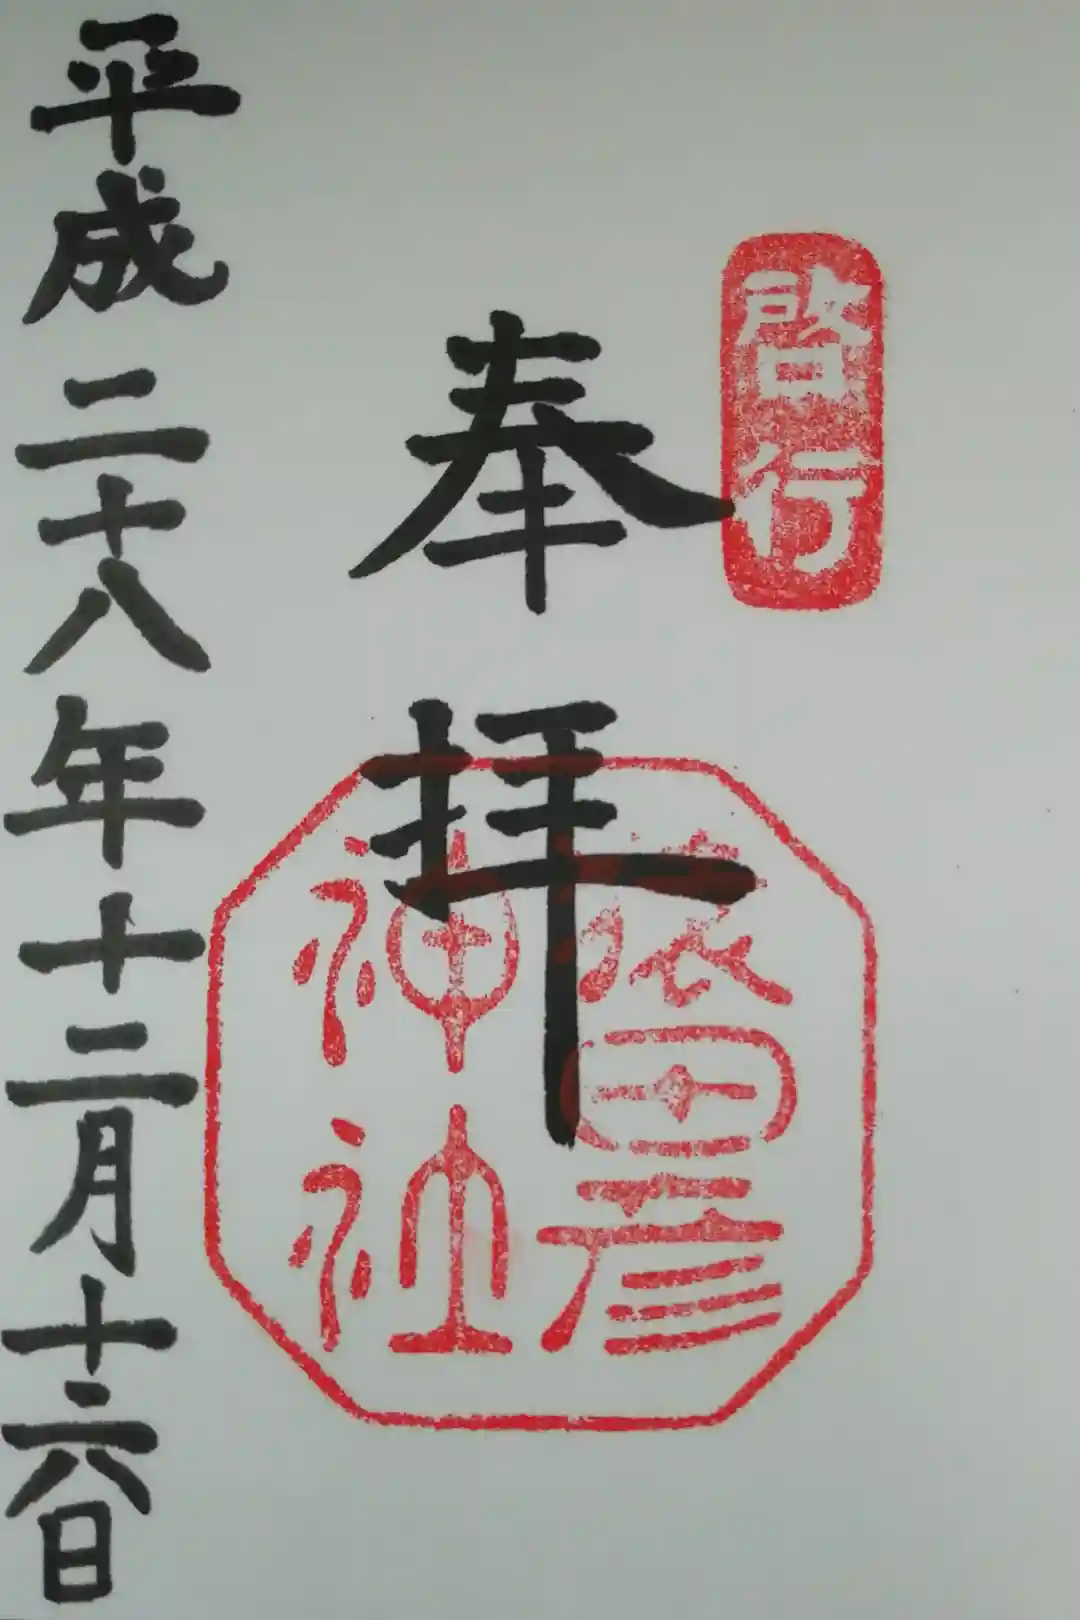 啓行
奉拝
猿田彦
神社
平成二十八年十二月十六日